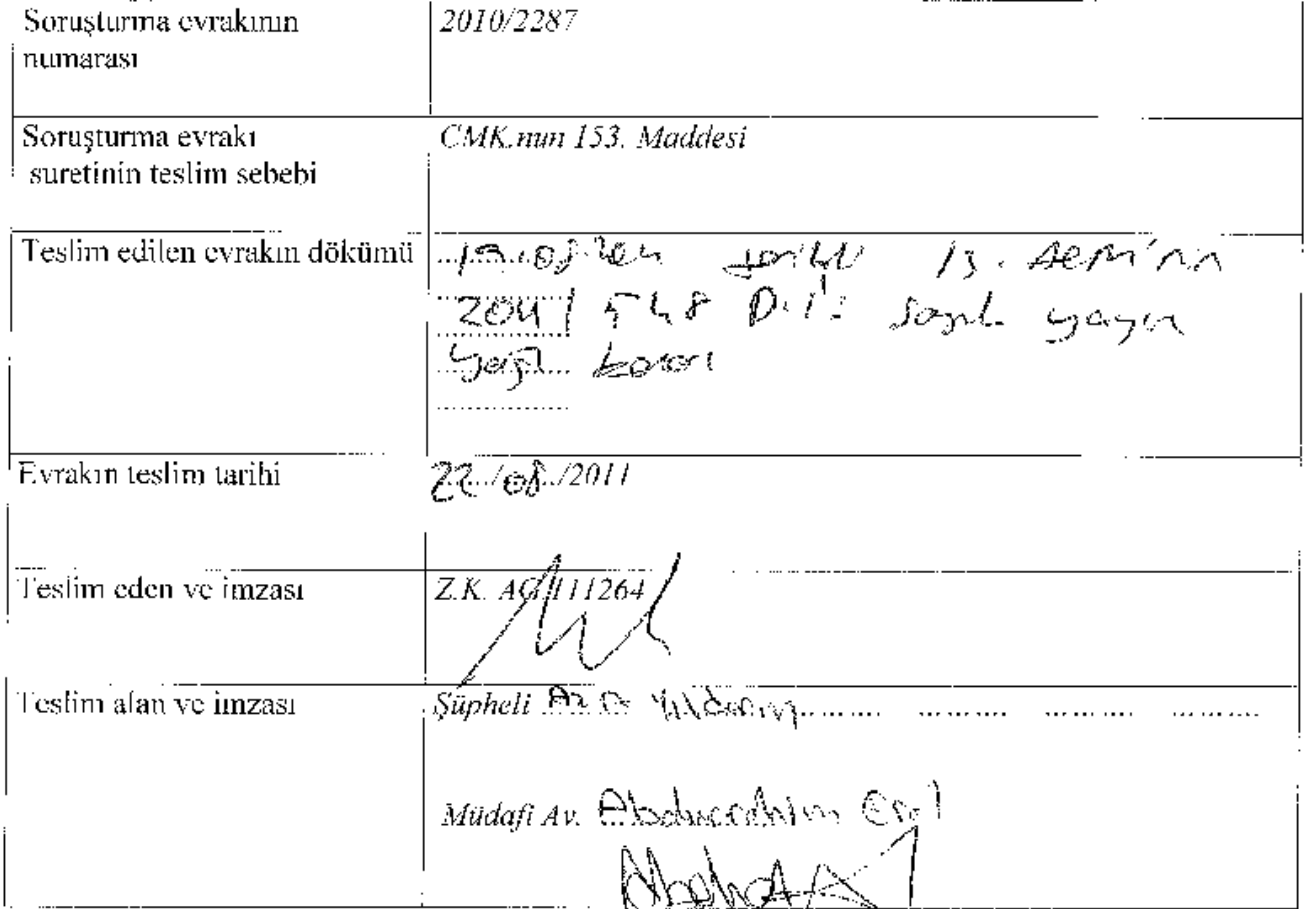 Soruşturma evrakının
numarası
2010/2287
Soruşturma evrakı
suretinin teslim sebebi
CMK.nun 153. Maddesi
Teslim edilen evrakın dökümü
19.08.2011 tarihli 13. ACM'nin
2011/548 D.İş sayılı yayın
yasağı kararı
Evrakın teslim tarihi
22../08../2011
Teslim eden ve imzası
Z.K. AG.111264
Teslim alan ve imzası
Şüpheli Aziz Yıldırım
Müdafi Av. Abdurrahim Erol